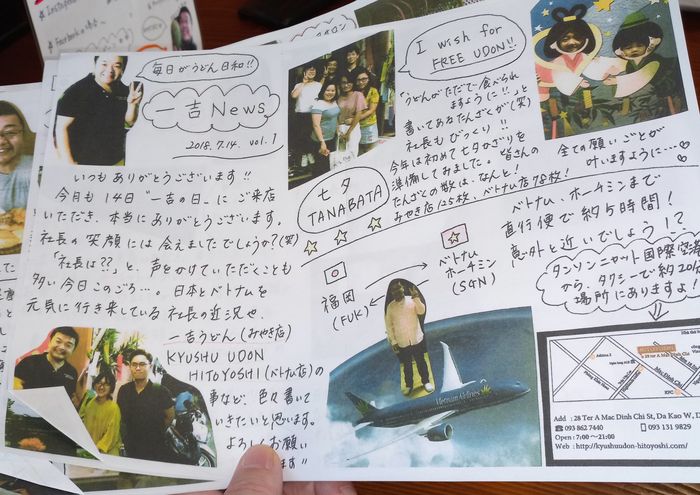 毎日がうどん日和!!
一吉News
2018.7.14. vol.1
いつもありがとうございます!!
今月も14日"一吉の日"にご来店
いただき、本当にありがとうございます。
社長の笑顔には会えましたでしょうか?(笑)
「社長は??」と、声をかけていただくことも
多い今日このごろ…。日本とベトナムを
元気に行き来している社長の近況や、
一吉うどん(みやき店)
KYUSHU UDON
HITOYOSHI(ベトナム店)の
事など、色々書いて
いきたいと思います。
よろしくお願い
ます!!
I wish for
FREE UDON!!
「うどんがただで食べられ
ますように!!」と
書いてあるたんざくが(笑)
社長もびっくり!!
今年は初めて七夕かざりを
準備してみました。皆さんの
たんざくの数は、なんと!
みやき店125枚、ベトナム店78枚!
全ての願いごとが
叶いますように…
七夕
TANABATA
福岡
(FUK)
ベトナム
ホーチミン
(SGN)
Vietnam Airlines
ベトナム、ホーチミンまで
直行便で約5時間!
意外と近いでしょう!?
タンソンニャット国際空港
から、タクシーで約20
場所にありますよ!
Add : 28 Ter A Mac Dinh Chi St, Da Kao W, D
093 862 7440
093 131 9829
Open : 7:00〜21:00
Web : http://kyushuudon-hitoyoshi.com/